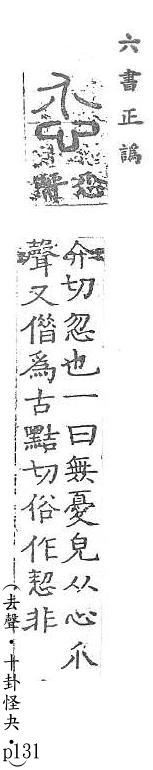 六書正譌
介切忽也一曰無憂皃从心介
聲又借爲古黠切俗作恝非
(去聲・十卦怪夬・p131)